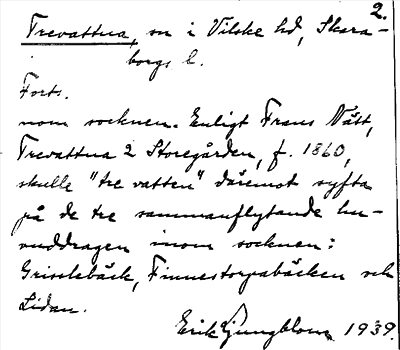 2.
Trevattna, sn i Vilske hd, Skara-
borgs l.
Forts.
nom socknen. Enligt Frans Nätt,
Trevattna 2 Storegården, f. 1860,
skulle "tre vatten" däremot syfta
på de tre sammanflytande hu-
vuddragen inom socknen:
Grisslebäck, Finnestorpabäcken och
Lidan.
Erik Ljungblom 1939.